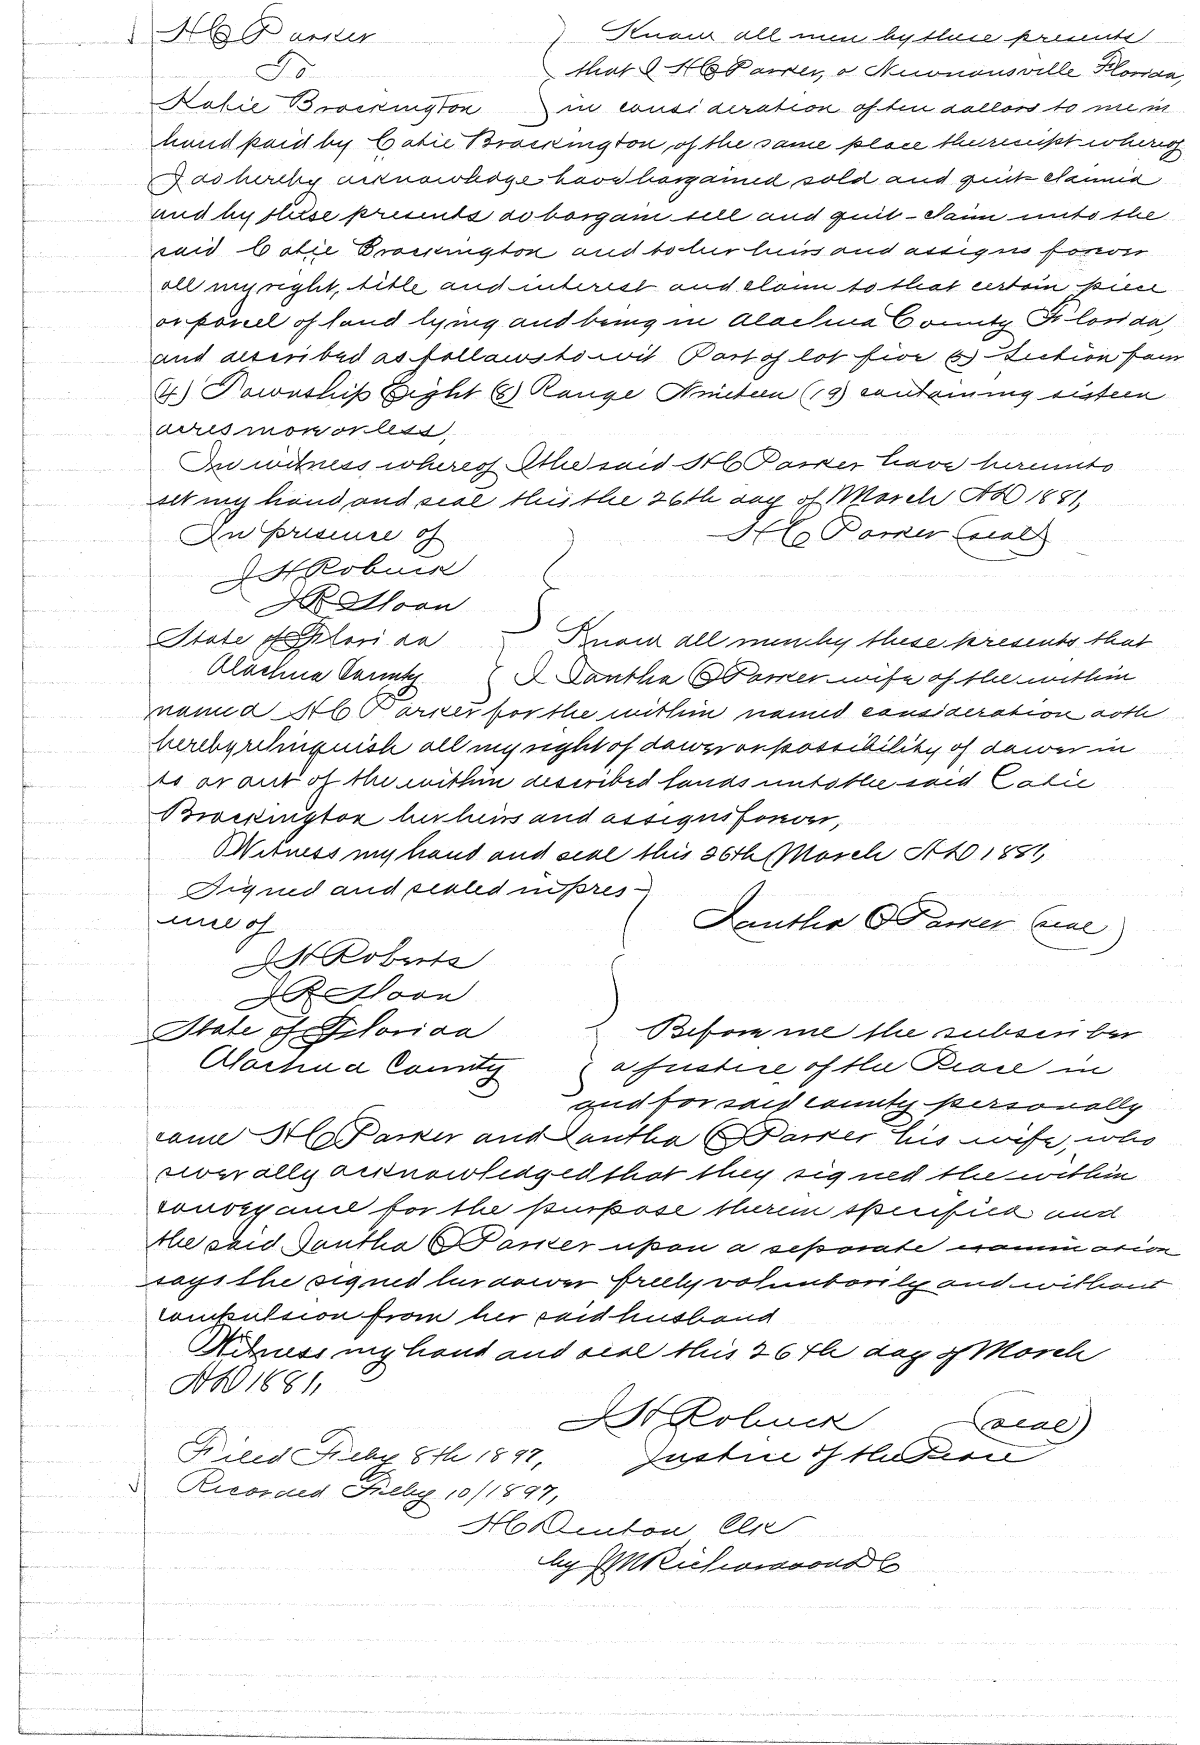 H C Parker } Know all men by these presents
To that I H C Parker, o Newnansville Florida,
Katie Brockington } in consideration of ten dollars to me in
hand paid by Catie Brockington, of the same place the reciept whereof
I do hereby acknowledge have bargained sold and quit claimed
and by these presents do bargain sell and quit-claim unto the
said Catie Brockington and to her heirs and assigns forever
all my right, title and interest and claim to that certain piece
or parcel of land lying and being in Alachua County Florida,
and described as follows to wit Part of lot five (5) Section four
(4) Township Eight (8) Range Nineteen (19) containing sixteen
acres more or less,
In witness whereof I the said H C Parker have hereunto
set my hand and seal this the 26th day of March A D 1881,
In presence of H C Parker (seal)
J H Robuck
J R Sloan
State of Florida } Know all men by these presents that
Alachua County { I Iantha O Parker wife of the within
named H C Parker for the within named consideration doth
hereby relinquish all my right of dower or possibility of dower in
to or out of the within described lands unto the said Catie
Brockington her heirs and assigns forever,
Witness my hand and seal this 26th March A D 1881,
Signed and sealed in pres-
ence of Iantha O Parker (seal)
J H Roberts
J R Sloan
State of Florida } Before me the subscriber
Alachua County } a Justice of the Peace in
and for said county personally
came H C Parker and Iantha O Parker his wife, who
severally acknowledged that they signed the within
conveyance for the purpose therein specified and
the said Iantha O Parker upon a separate examination
says the signed her dower freely voluntarily and without
compulsion from her said husband
Witness my hand and seal this 26th day of March
A D 1881,
J H Robuck (seal)
Filed Feby 8th 1897, Justice of the Peace
Recorded Feby 10/1897,
H C Denton Clk
by J M Richamond D C